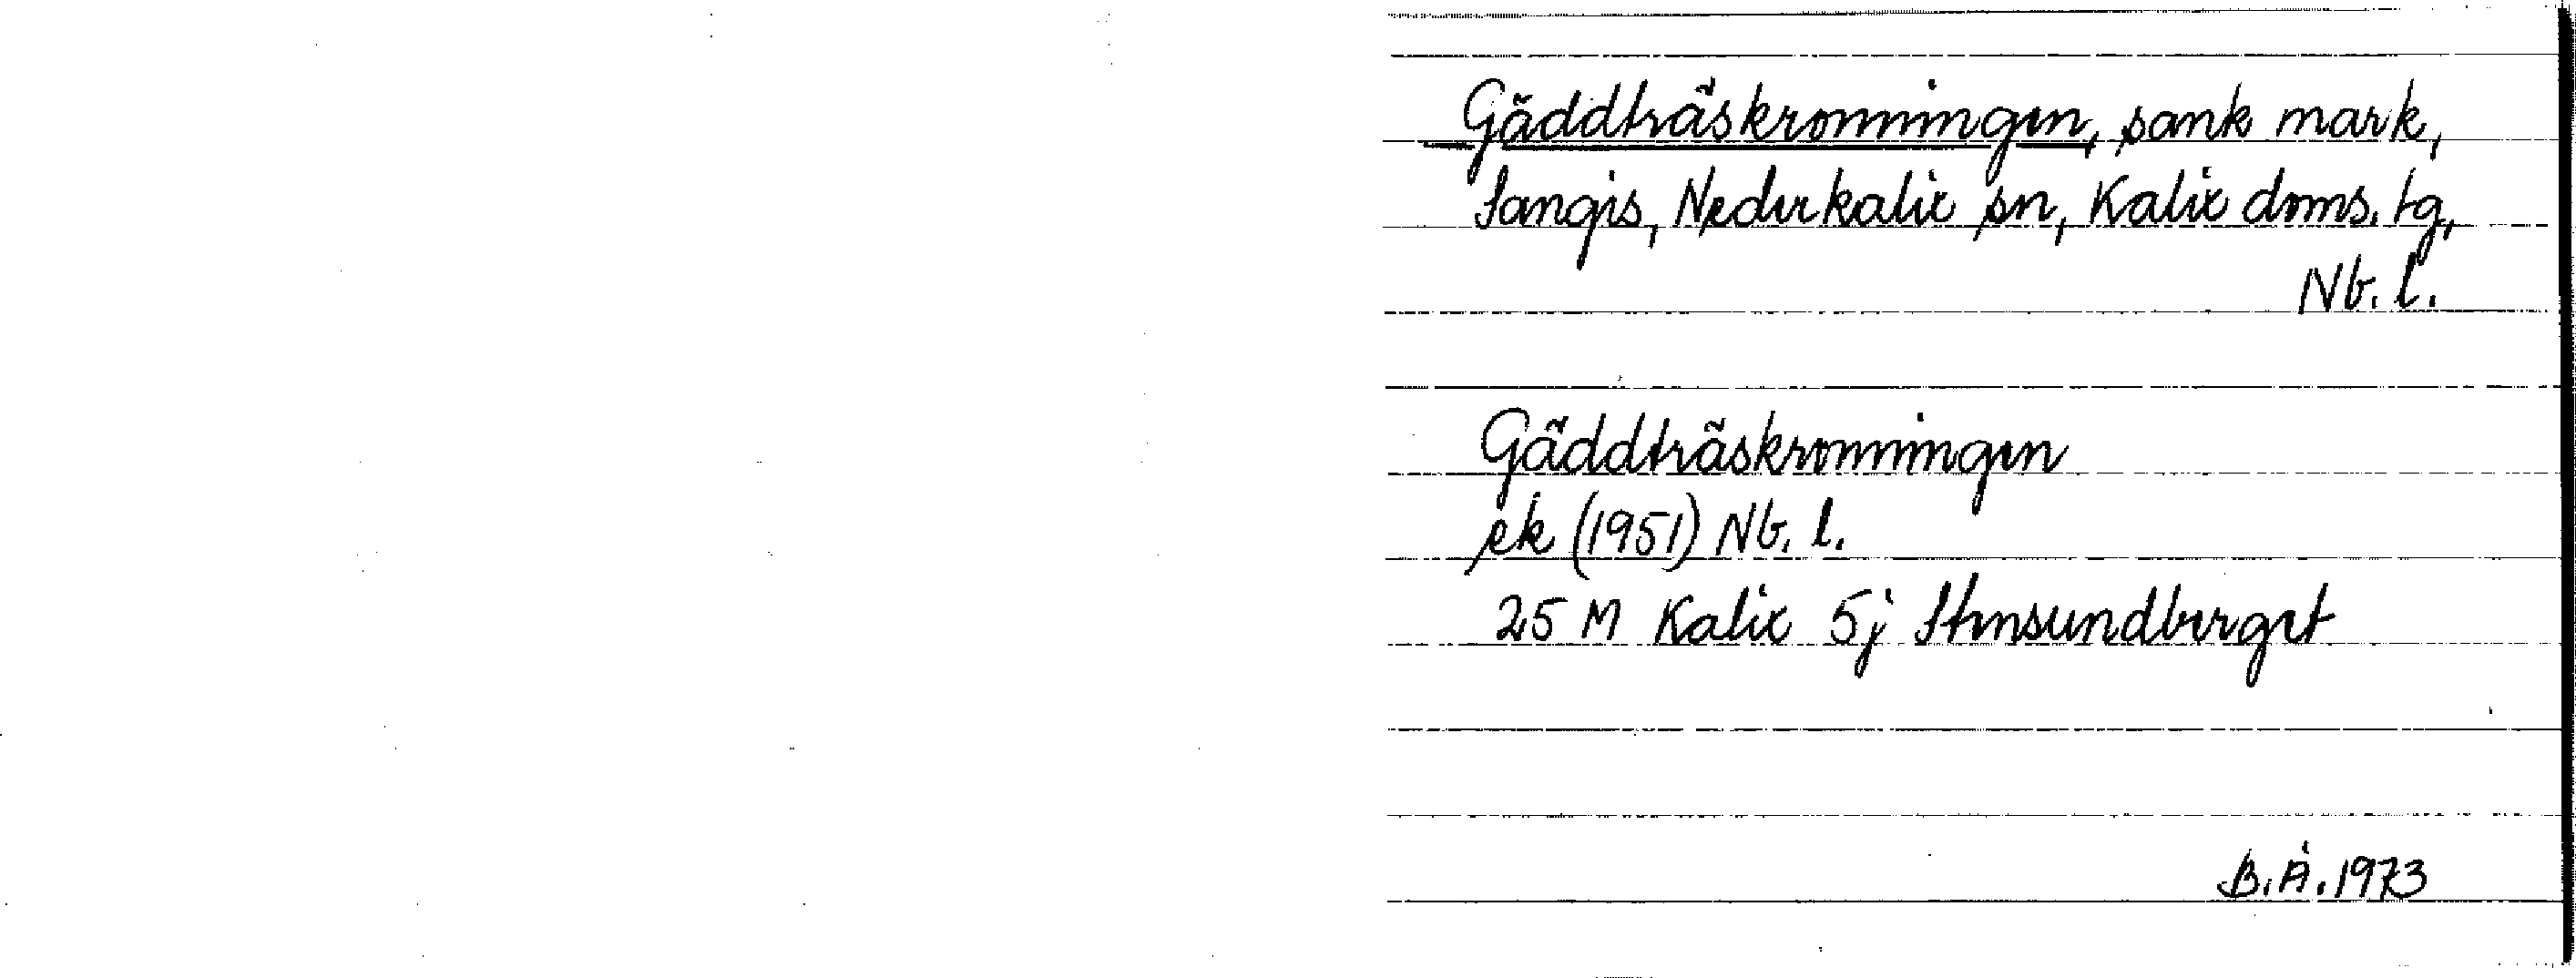 Gäddträskronningen, sank mark,
Sangis, Nederkalix sn, Kalix doms. tg,
Nb. l.
Gäddträskronningen
ek (1951) Nb. l.
25 M Kalix 5j Stensundberget
B.Å. 1973